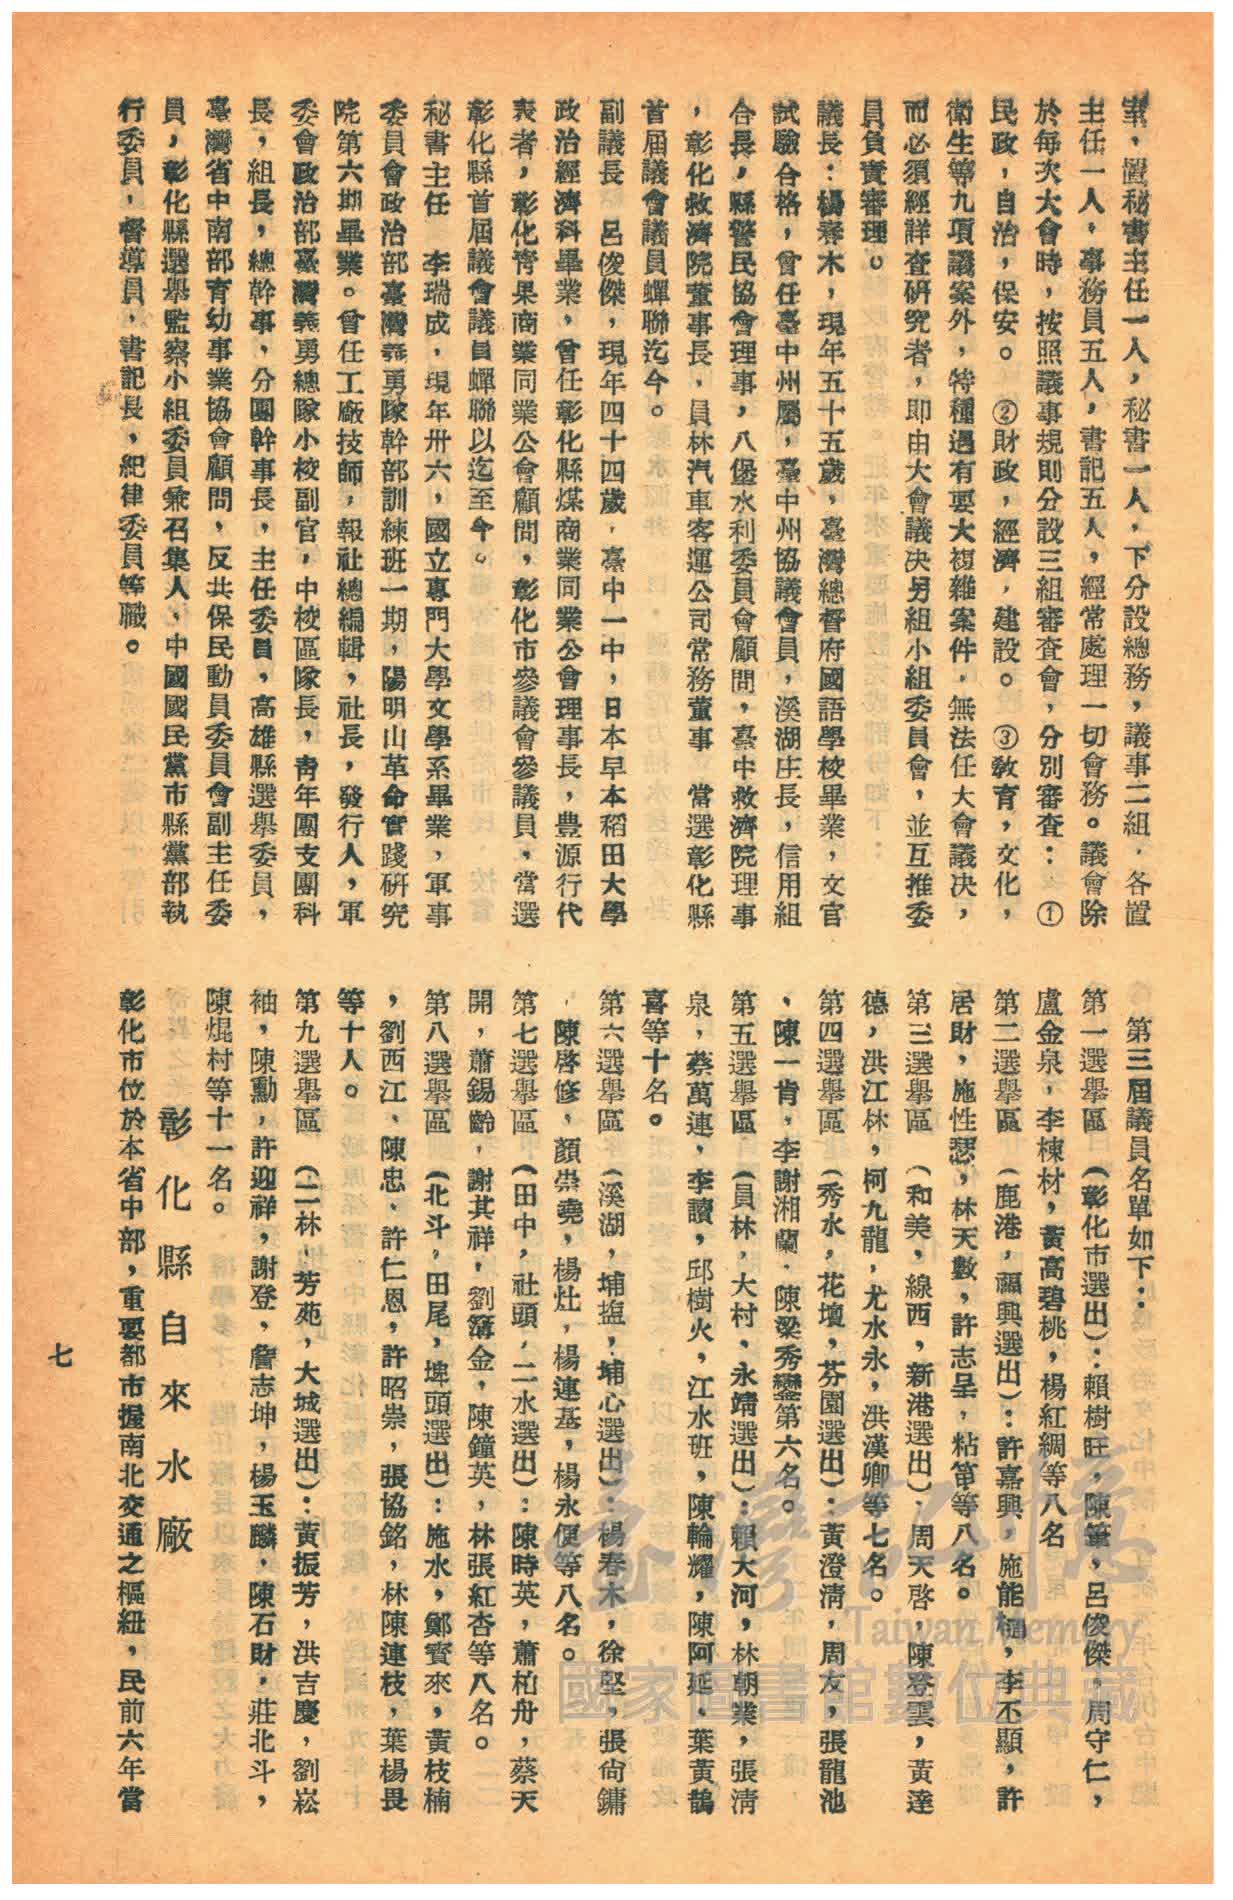 室，置秘書主任一人，秘書一人，下分設總務，議事二組，各置
主任一人，事務員五人，書記五人，經常處理一切會務。議會除
於每次大會時，按照議事規則分設三組審查會，分別審查：①
民政，自治，保安。②財政，經濟，建設。③教育，文化，
衛生等九項議案外，特種遇有要大複雜案件，無法任大會議决，
而必須經詳查研究者，即由大會議决另組小組委員會，並互推委
員負責審理。
議長：楊春木，現年五十五歲，臺灣總督府國語學校畢業，文官
試驗合格，曾任臺中州屬，臺中州協議會員，溪湖庄長，信用組
合長，縣警民協會理事，八堡水利委員會顧問，臺中救濟院理事
，彰化救濟院董事長，員林汽車客運公司常務董事 當選彰化縣
首屆議會議員蟬聯迄今。
副議長 呂俊傑，現年四十四歲，臺中一中，日本早本稻田大學
政治經濟科畢業，曾任彰化縣煤商業同業公會理事長，豊源行代
表者，彰化靑果商業同業公會顧問，彰化市參議會參議員，當選
彰化縣首屆議會議員蟬聯以迄至今。
秘書主任 李瑞成，現年卅六，國立專門大學文學系畢業，軍事
委員會政治部臺灣義勇隊幹部訓練班一期，陽明山革命實踐硏究
院第六期畢業。曾任工廠技師，報社總編輯，社長，發行人，軍
委會政治部臺灣義勇總隊小校副官，中校區隊長，靑年團支團科
長，組長，總幹事，分團幹事長，主任委員，高雄縣選舉委員，
臺灣省中南部育幼事業協會顧問，反共保民動員委員會副主任委
員，彰化縣選舉監察小組委員兼召集人，中國國民黨市縣黨部執
行委員，督導員，書記長，紀律委員等職。
第三屆議員名單如下：
第一選舉區 （彰化市選出）：賴樹旺，陳筆，呂俊傑，周守仁，
盧金泉，李棟材，黃高碧桃，楊紅綢等八名
第二選舉區 （鹿港，福興選出）：許嘉興，施能樞，李丕顯，許
居財，施性瑟，林天數，許志呈，粘笛等八名。
第三選舉區 （和美，線西，新港選出），周天啓，陳登雲，黃達
德，洪江林，柯九龍，尤水永，洪漢卿等七名。
第四選舉區 （秀水，花壇，芬園選出）：黃澄淸，周友，張龍池
，陳一肯，李謝湘蘭，陳梁秀鑾第六名。
第五選舉區 （員林，大村，永靖選出）：賴大河，林朝業，張淸
泉，蔡萬連，李讀，邱樹火，江水班，陳輪耀，陳阿延，葉黃鵲
喜等十名。
第六選舉區 （溪湖，埔塩，埔心選出）：楊春木，徐堅，張尙鏞
，陳啓修，顏崇堯，楊灶，楊連基，楊永便等八名。
第七選舉區 （田中，社頭，二水選出）：陳時英，蕭柏舟，蔡天
開，蕭錫齡，謝其祥，劉溎金，陳鐘英，林張紅杏等八名。
第八選舉區 （北斗，田尾，埤頭選出）：施水，鄭賓來，黃枝楠
，劉西江，陳忠，許仁恩，許昭崇，張協銘，林陳連枝，葉楊畏
等十人。
第九選舉區 （二林，芳苑，大城選出）：黃振芳，洪吉慶，劉崧
袖，陳勳，許迎祥，謝登，詹志坤，楊玉麟，陳石財，莊北斗，
陳焜村等十一名。
彰化縣自來水廠
彰化市位於本省中部，重要都市握南北交通之樞紐，民前六年當
七
臺灣記憶
Taiwan Memory
國家圖書館數位典藏